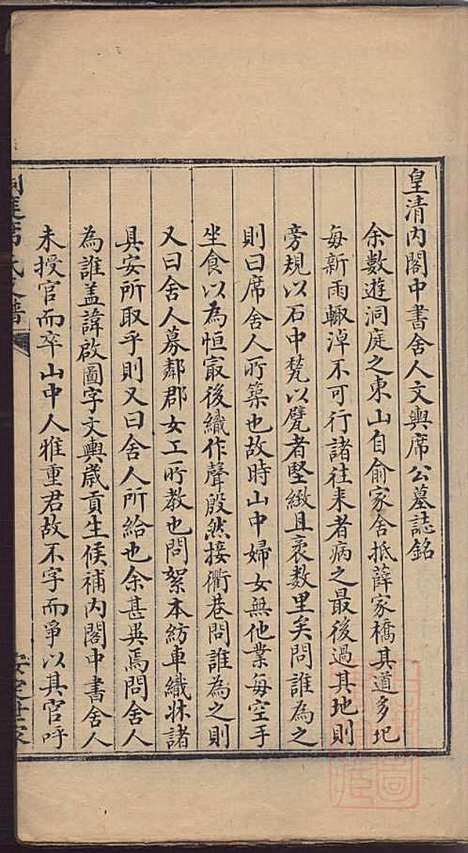 皇清內閣中書舍人文輿席公墓誌銘
余數遊洞庭之東山自俞家舍抵薛家橋其道多圯
每新雨輙淖不可行諸往來者病之最後過其地則
旁規以石中甃以甓者堅緻且袤数里矣問誰為之
則曰席舍人所築也故時山中婦女無他業每空手
坐食以為恒最後織作聲殷然接衢巷問誰為之則
又曰舍人募鄰郡女工所教也問絮本紡車織牀諸
具安所取乎則又曰舍人所給也余甚異焉問舍人
為誰蓋諱啟圖字文輿歲貢生候補內閣中書舍人
未授官而卒山中人雅重君故不字而爭以其官呼
洞庭席氏支譜
安定世家